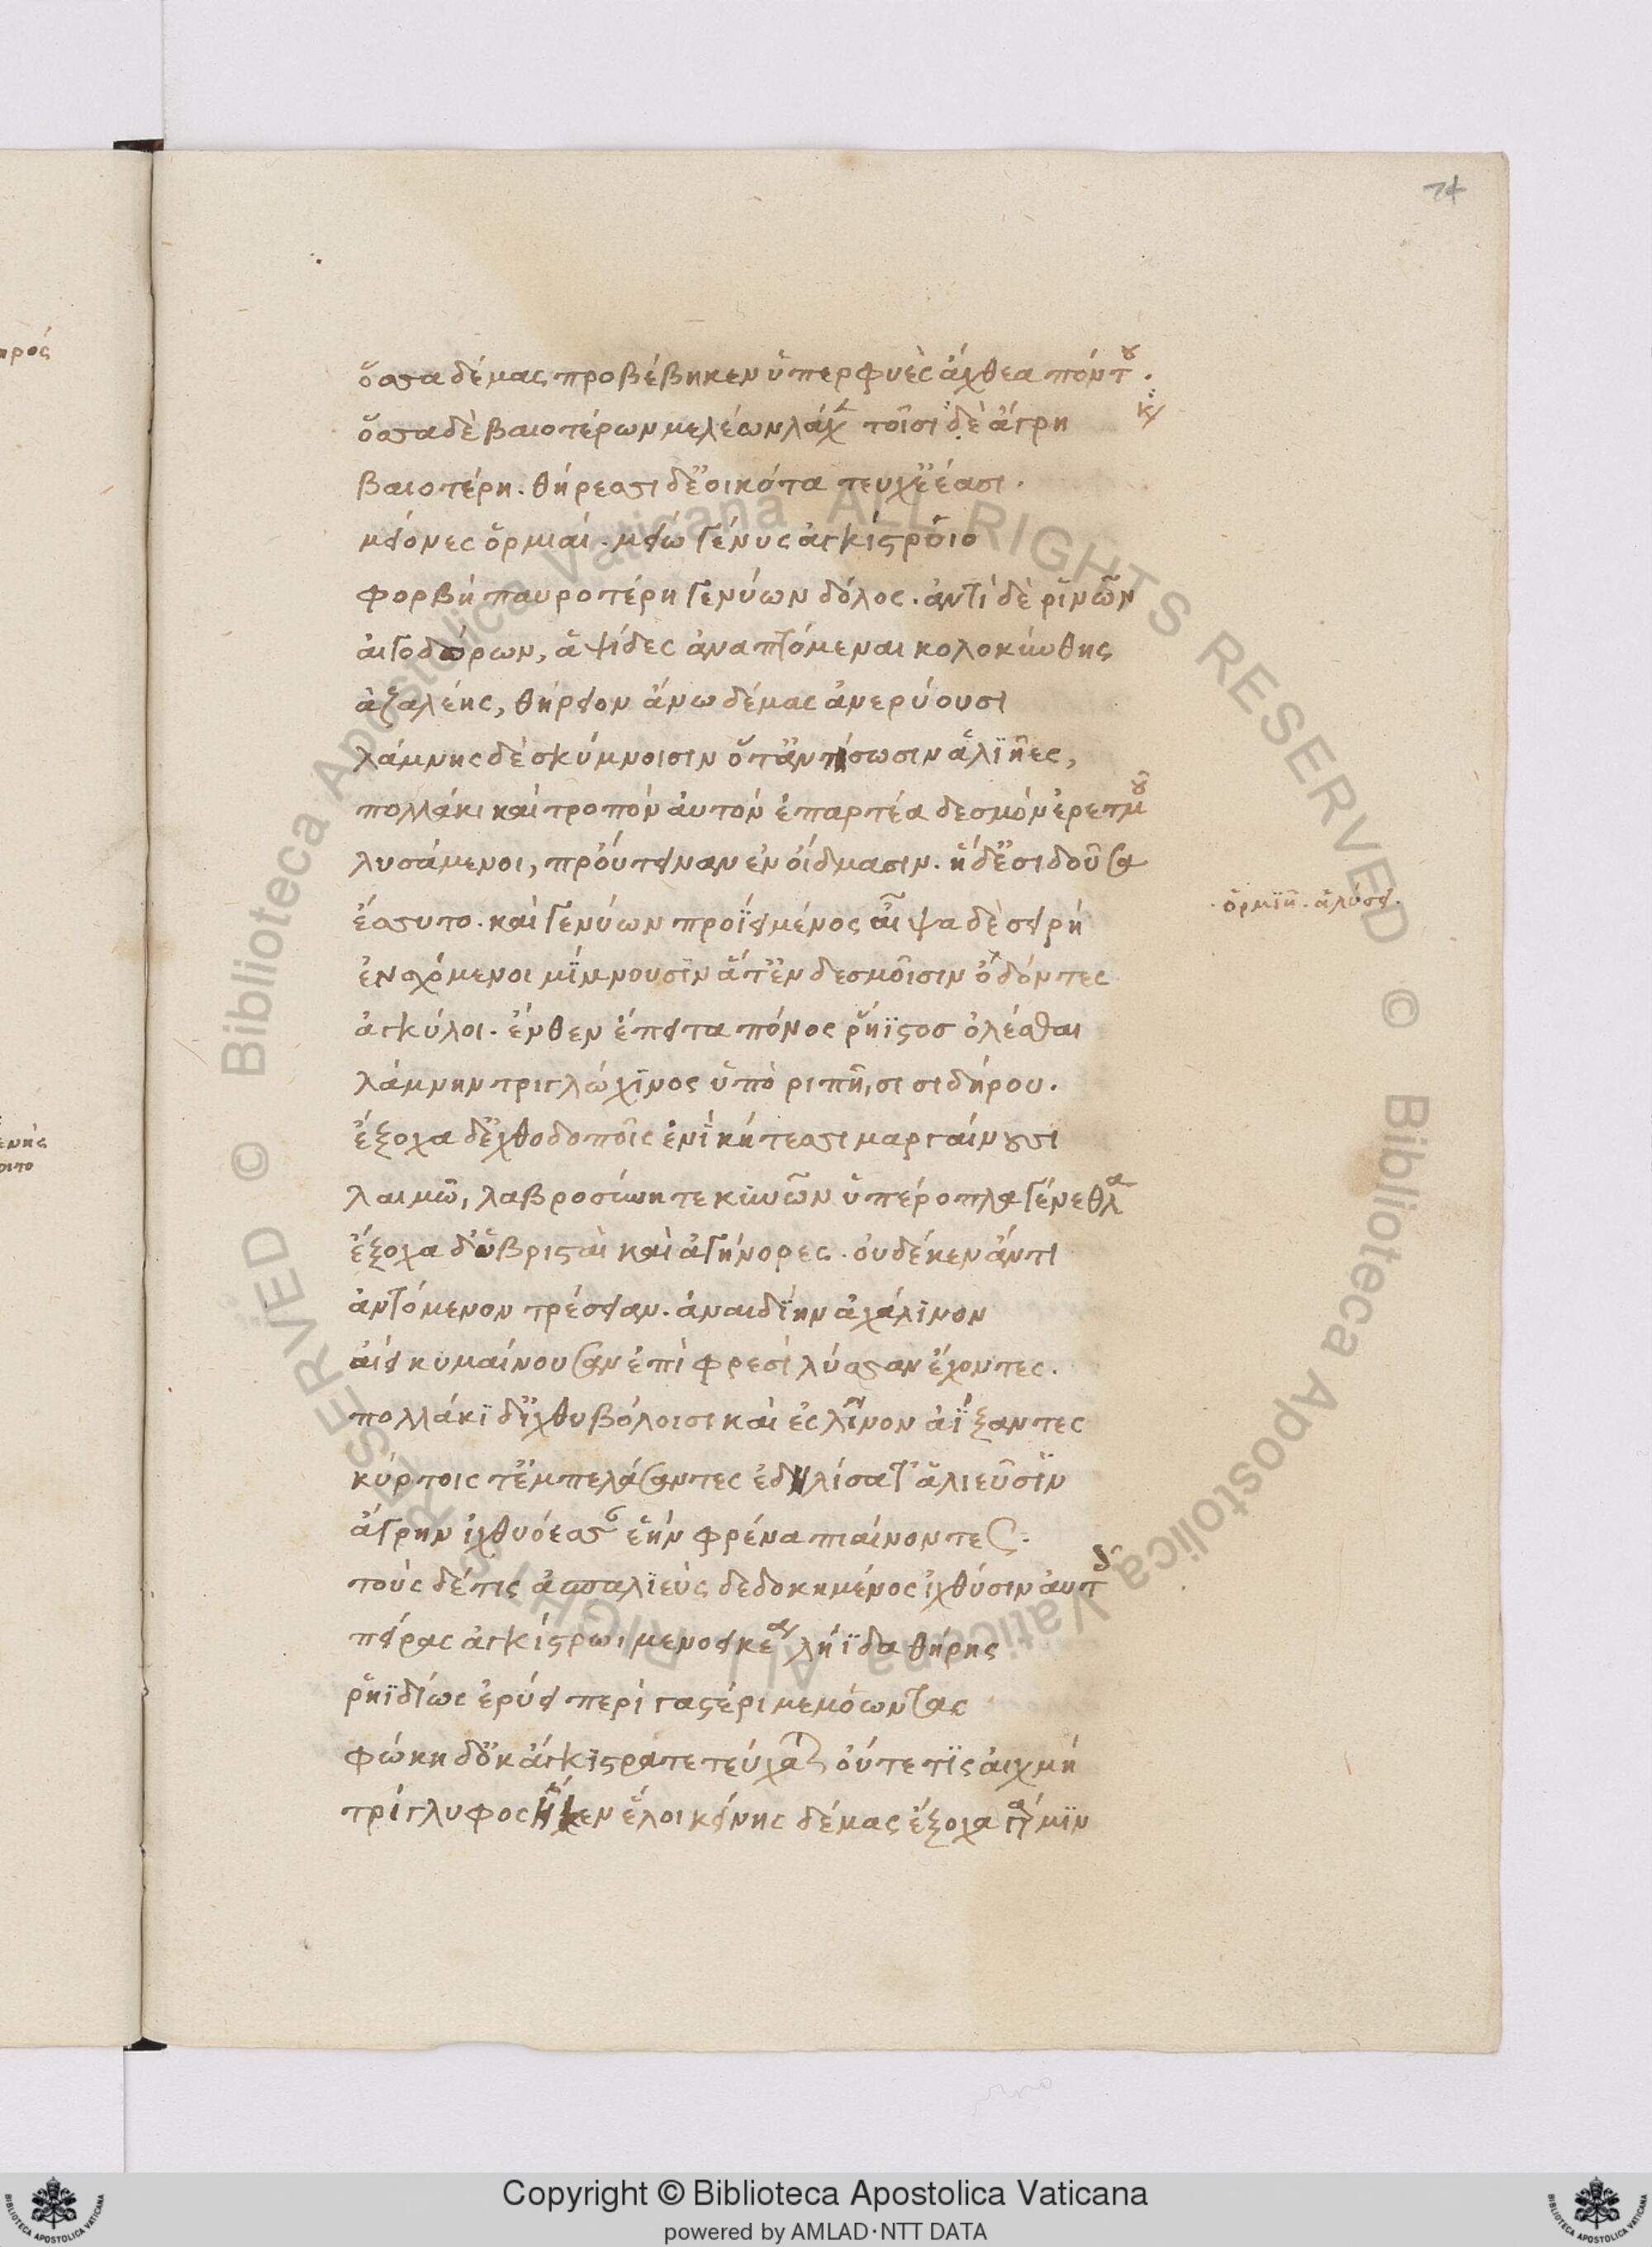 74
ηρός
ὅσσα δέμας προβέβηκεν ὑπερφυὲς ἄχθεα πόντου.
ὅσσα δὲ βαιοτέρων μελέων λάχε τοῖσι δὲ ἄγρη
βαιοτέρη. θήρεσσι δ' ἐοικότα τεύχε' ἔασι.
μείονες ὁρμιαί. μείω γένυς ἀγκίστροιο
φορβὴ παυροτέρη γενύων δόλος. ἀντὶ δὲ ῥινῶν
αἰγοδόρων, ἁψίδες ἀναπτόμεναι κολοκύνθης
ἀζαλέης, θήρειον ἄνω δέμας ἀνερύουσι
λάμνης δὲ σκύμνοισιν ὅτ' ἀντήσωσιν ἁλιῆες,
πολλάκι καὶ τροπὸν αὐτὸν ἐπαρτέα δεσμὸν ἐρετμοῦ
λυσάμενοι, προὔτειναν ἐν οἴδμασιν. ἡ δ' ἐσιδοῦσα
ἔσσυτο. καὶ γενύων προϊει μένος αἶψα δὲ σειρῇ
· ὁρμιῇ. ἁλύσει.
ἐνσχόμενοι μίμνουσιν ἅτ' ἐν δεσμοῖσιν ὀδόντες
ἀγκύλοι. ἔνθεν ἔπειτα πόνος ῥήϊστος ὀλέσθαι
λάμνην τριγλώχινος ὑπὸ ῥιπῇσι σιδήρου.
ἔξοχα δ' ἐχθοδοποῖς ἐνὶ κήτεσσι μαργαίνουσι
λαιμῷ, λαβροσύνῃ τε κυνῶν ὑπέροπλα γένεθλα
ἔξοχα δ' ὑβρισταὶ καὶ ἀγήνορες. οὐδέ κεν ἄντι
ἀντόμενον τρέσειαν. ἀναιδίην ἀχάλινον
αἰεὶ κυμαίνουσαν ἐπὶ φρεσὶ λύσσαν ἔχοντες.
πολλάκι δ' ἰχθυβόλοισι καὶ ἐς λίνον ἀΐξαντες
κύρτοις τ' ἐμπελάσαντες ἐδηλίσατ' ἁλιεῦσιν
ἄγρην ἰχθυόεσσαν ἑὴν φρένα πιαίνοντες.
τοὺς δέ τις ἀσπαλιεὺς δεδοκημένος ἰχθύσιν αὐτοῖς
πείρας ἀγκίστρῳ μενοεικέα ληΐδα θήρης
ῥηϊδίως ἐρύει περὶ γαστέρι μεμόωντας
φώκῃ δ' οὐκ ἄγκιστρα τετεύχαται οὔτε τις αἰχμὴ
τρίγλυφος ἥ κεν ἕλοι κείνης δέμας ἔξοχα γάρ μιν
Copyright © Biblioteca Apostolica Vaticana
powered by AMLAD·NTT DATA